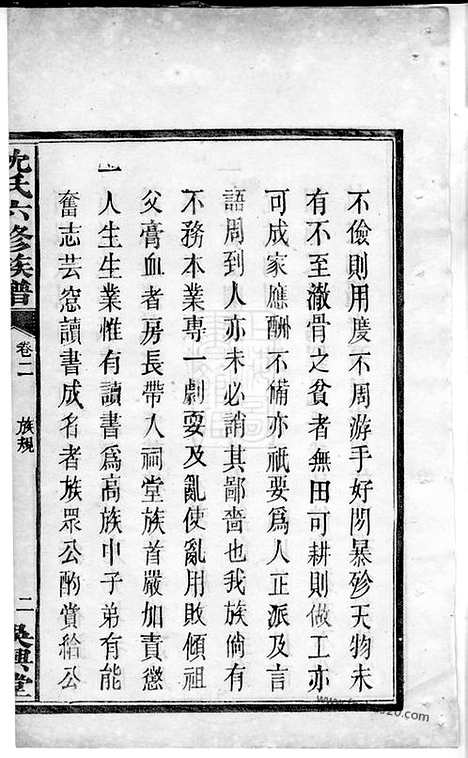 不儉則用度不周游手好閒暴殄天物未
有不至澈骨之貧者無田可耕則做工亦
可成家應酬不備亦祇要爲人正派及言
語周到人亦未必誚其鄙嗇也我族倘有
不務本業專一劇耍及亂使亂用敗傾祖
父膏血者房長帶入祠堂族首嚴加責懲
一人生生業惟有讀書爲高族中子弟有能
奮志芸窓讀書成名者族眾公酌賞給公
沈氏六修族譜
卷二
族規
二
吳興堂